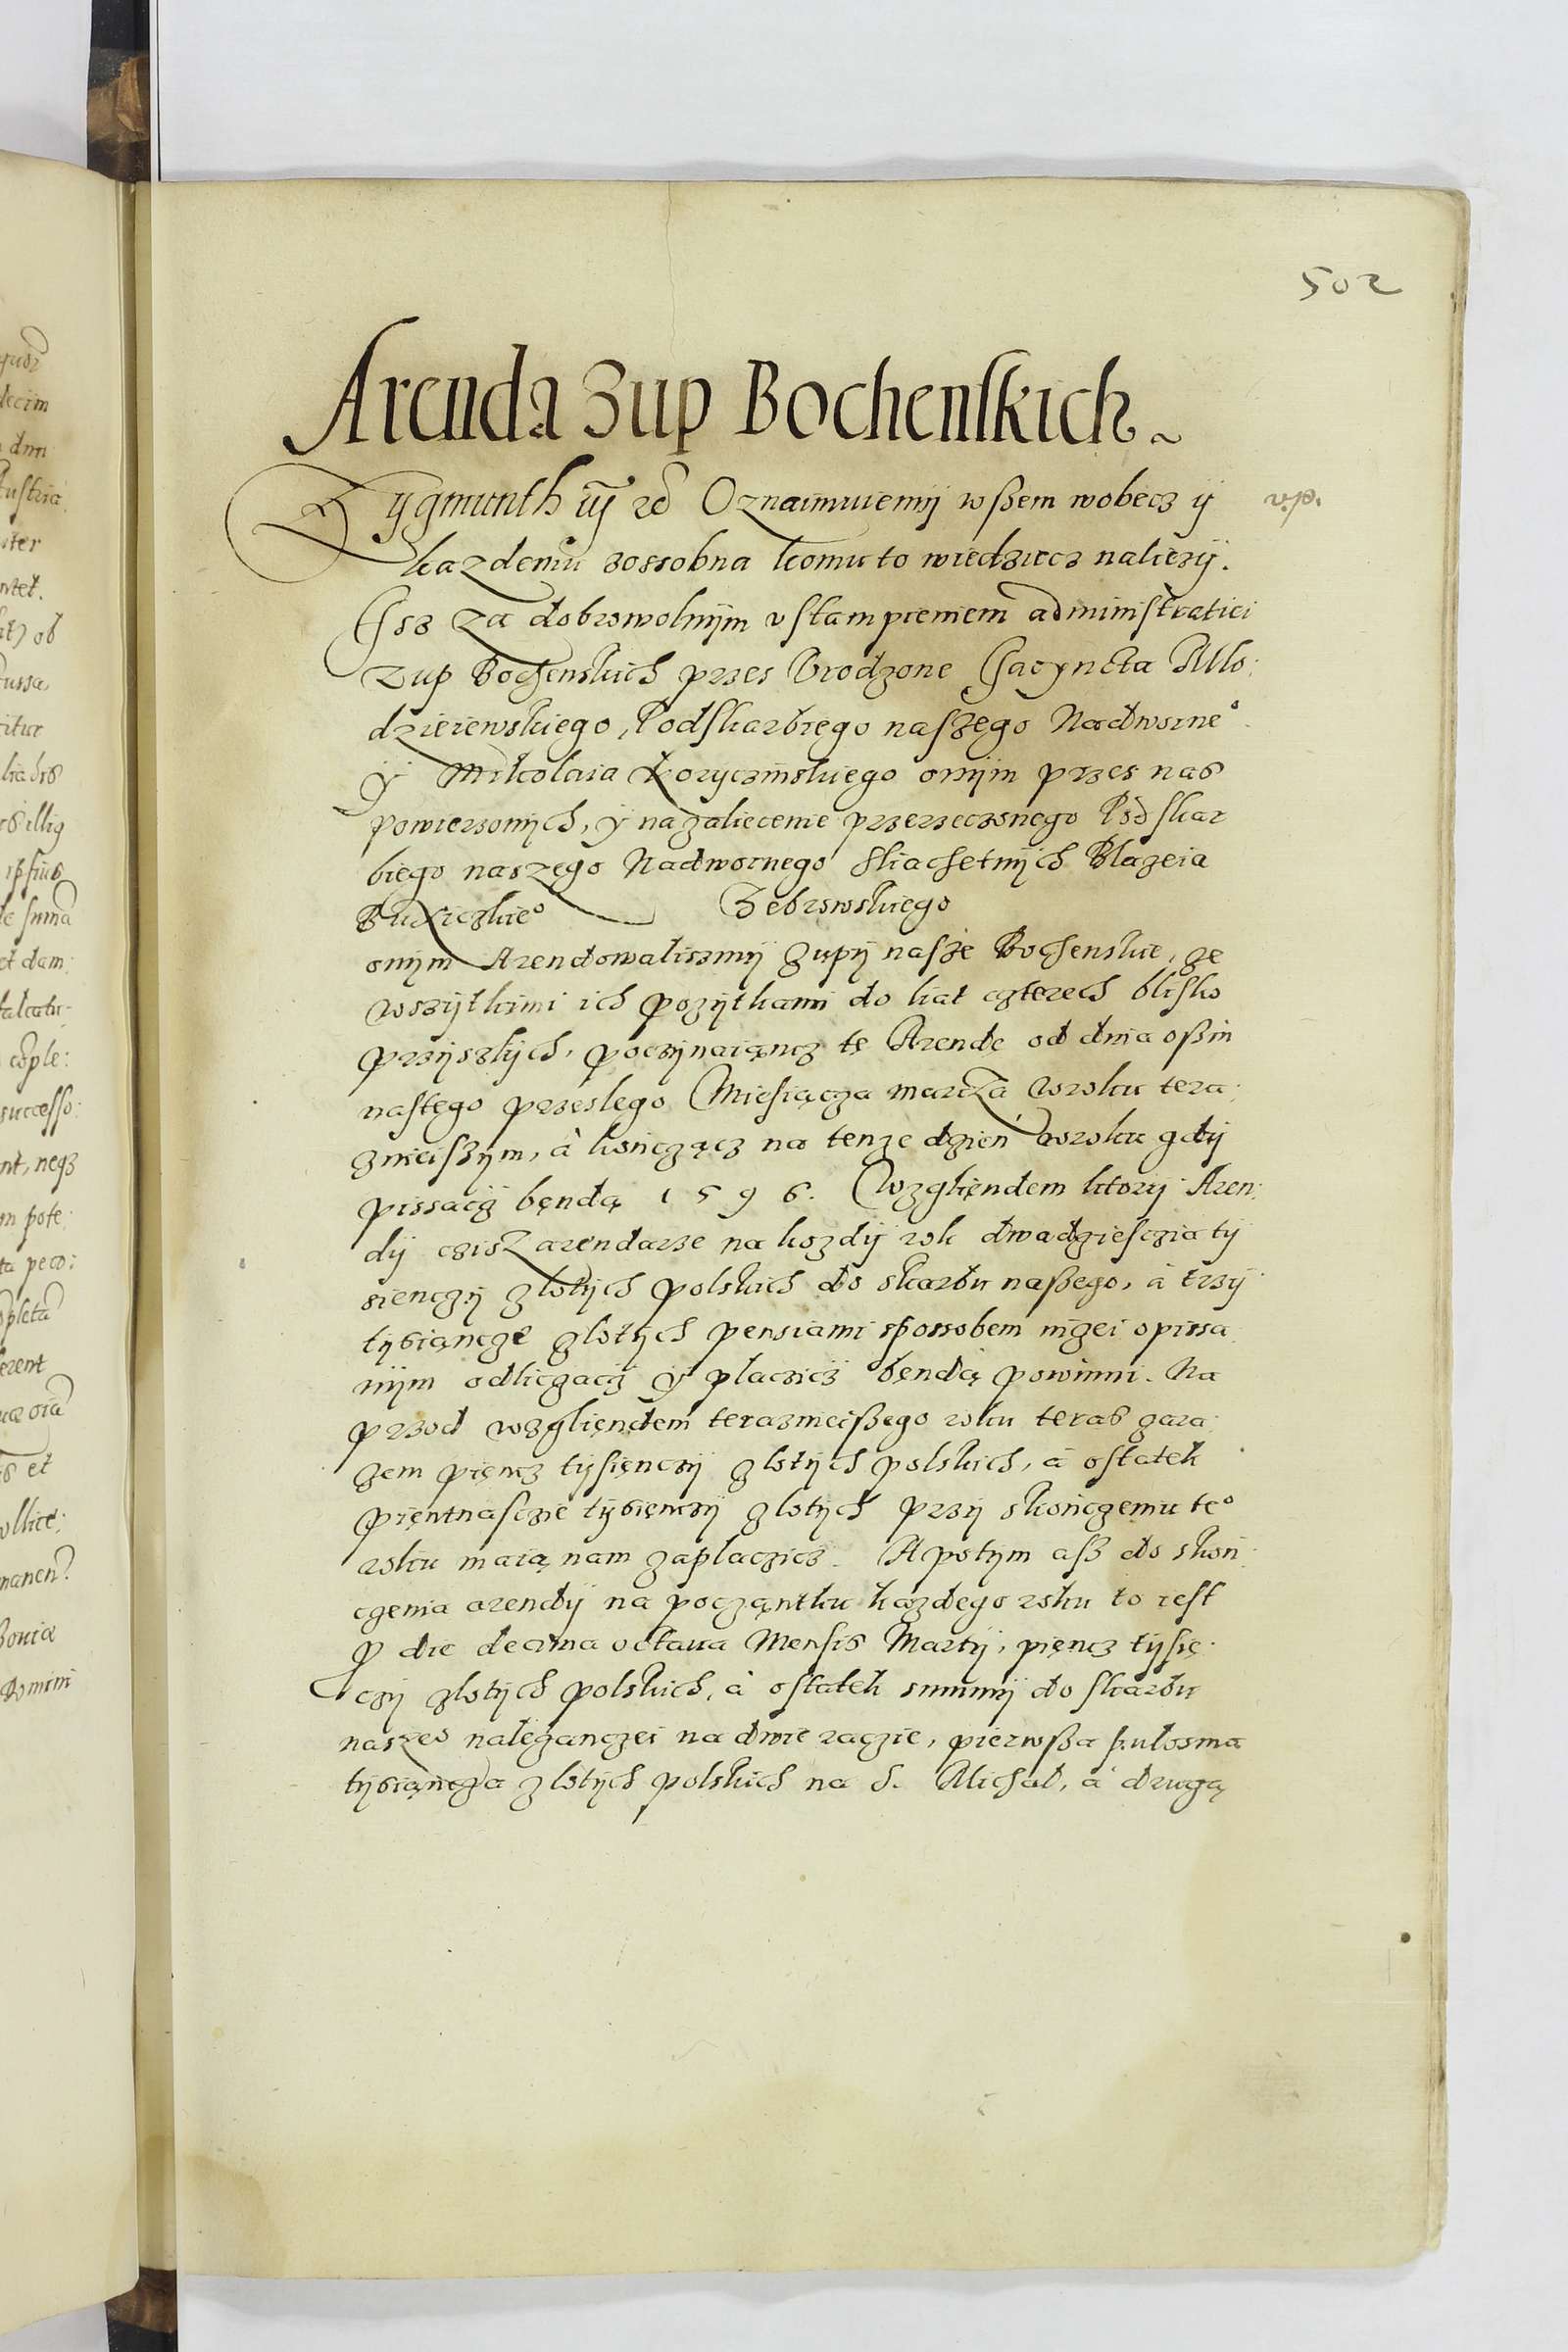 502
Arenda Zup Bochenskich.
Zygmunth iij etc Oznaimuiemy wßem wobecz ij
kazdemu zossobna komu to wiedziecz naliezij.
Isz za dobrowolnijm vstampieniem administratiei
zup Bochenskich przes Vrodzone Iacyncta Mlo:
dzieiewskiego, Podskarbiego naszego Nadworne°
ÿ Mikolaia Koryczinskiego onijm przes nas
powierzonijch, ÿ na zaliecenie przerzeczonego Podskar
biego naszego Nadwornego Sliachetnijch Blazeia
Zebrowskiego
onijm Arendowalismij zupij nasze Bochenskie, ze
wszijtkimi ich pozijtkami do liat czterech blisko
przijszlijch, poczijnaiącz tę Arendę od dnia oßm
nastego przeslego Miesiącza marcza w roku tera:
znieiszijm, à kończącz na tenze dzień w roku gdij
pissacz będą 1596. Wzgliendem ktorij Aren:
dij cisz arendarze na kozdij rok dwadziesczia tij
sienczij zlotijch polskich do skarbu naßego, à trzij
tijsiącze zlotijch pensiami spossobem nizei opissa
nijm odliczacz ÿ placzicz będą powinni. Na
przod wzgliędem teraznieißego roku teras zara:
zem pięncz tijsięnczij zlotijch polskich, à ostatek
pięntnasczie tijsięnczij zlotijch przij skończemu te°
roku maią nam zaplaczicz. A potijm aß do skoń
czenia arendij na począntku kazdego roku to iest
ꝓ die decima octaua Mensis Martij, pięncz tijsię:
czij zlotijch polskich, à ostatek summij do skarbu
nasze° nalezanczei na dwie raczie, pierwßa pułosma
tijsiąncza zlotijch polskich na S. Michał, à drugą